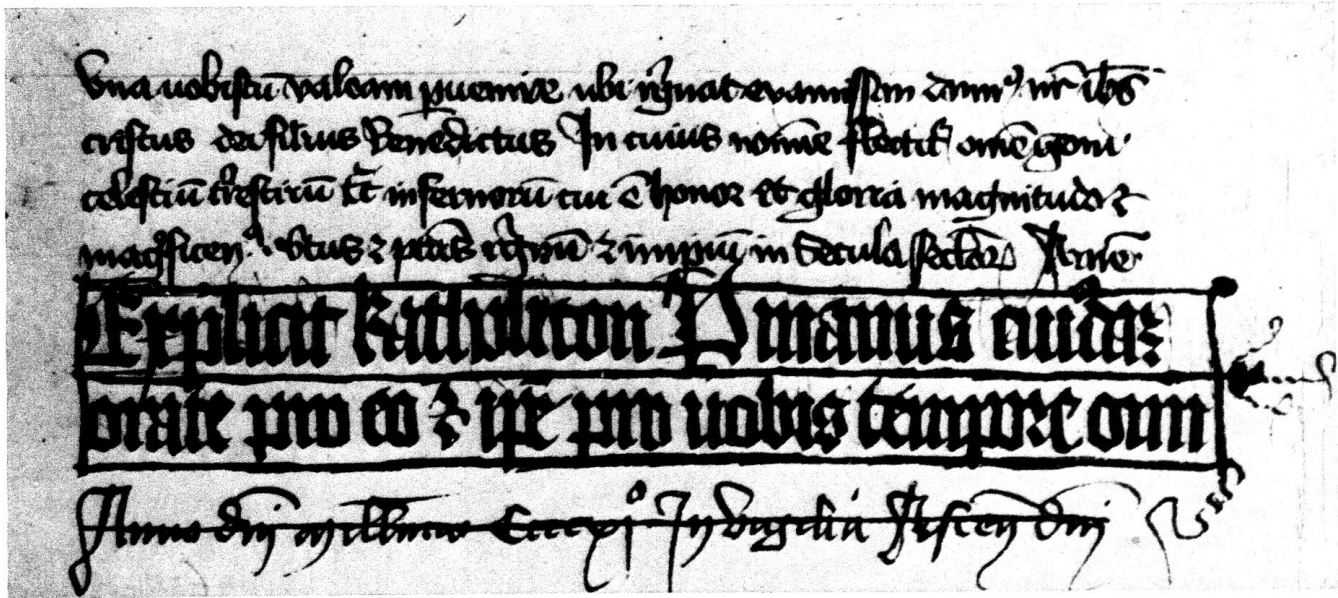 Una uobiscū valeam puenire ubi regnat evamissim dnm9 nr ihs
cristus dei filius Benedictus In cuius nomīe flectit omē genu
celestiū trestriū et infernorū cui ē honor et gloria magnitudo et
magficen. vtus et ptās regnū et impiū in secula sclor Amē
Explicit Katholicon P manus cuidā
orate pro eo et ipe pro uobis tempore omni
Anno dnī millīmo Ccccxi° In vigilia Ascen dnī